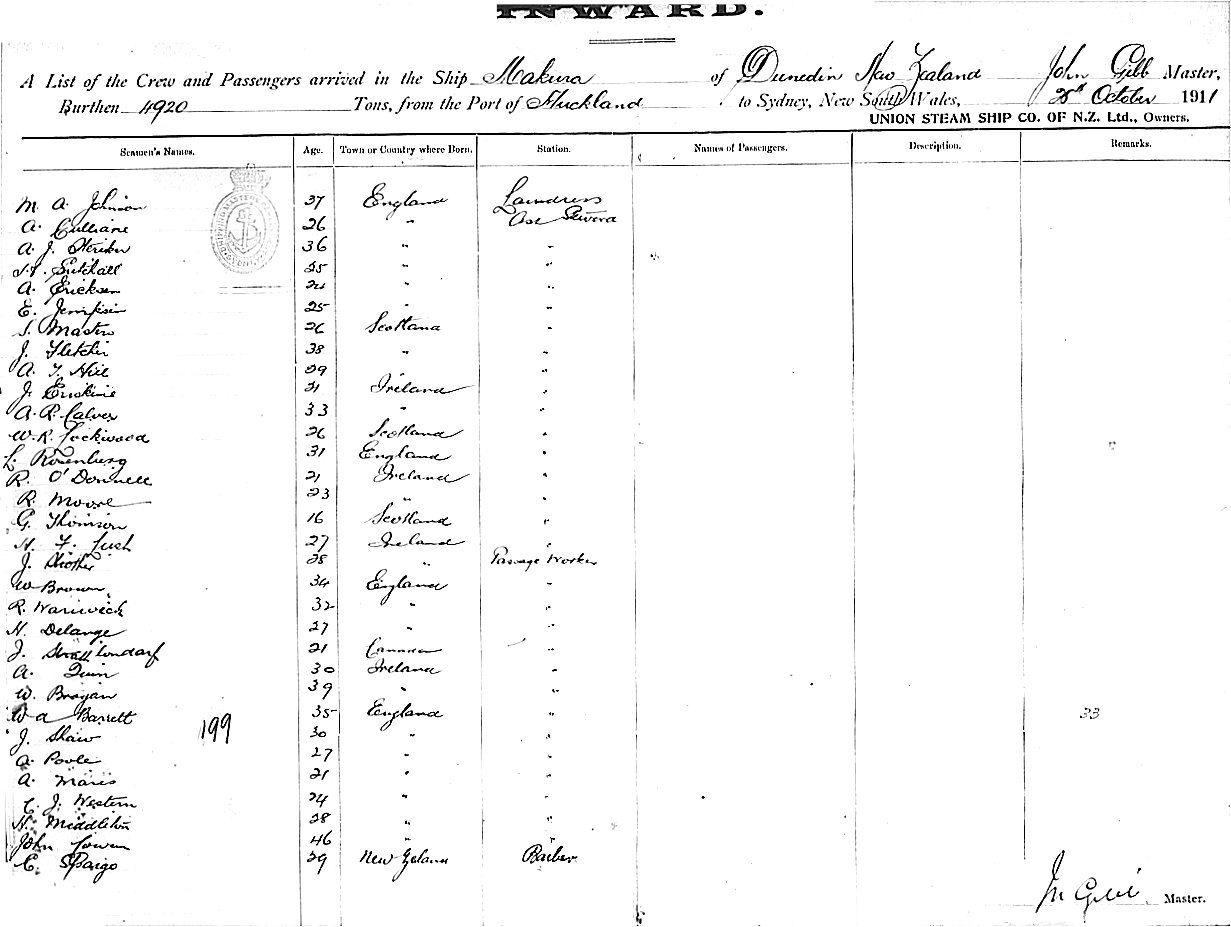 INWARD.
A List of the Crew and Passengers arrived in the Ship Makura of Dunedin New Zealand John Gibb Master,
Burthen 4920 Tons, from the Port of Auckland to Sydney, New South Wales, 28th October 1911
UNION STEAM SHIP CO. OF N.Z. Ltd., Owners.
Seamen's Names. Age. Town or Country where Born. Station. Names of Passengers. Description. Remarks.
M. A. Johnson 37 England Laundress
A. Culliane 26 " Asst
A. J. 36 " "
25 " "
A. Ericksen 24 " "
E. 25 " "
S. Masters 26 Scotland "
J. Fletcher 38 " "
A. T. Hill 29 " "
J. Erskine 21 Ireland "
A. R. Calver 33 " "
W. R. Lockwood 26 Scotland "
L. Rosenburg 31 England "
R. O'Donnell 21 Ireland "
R. Moore 23 " "
G. Thomson 16 Scotland "
H. F. Lush 27 Ireland "
J. 28 " Passage Worker
W Brown 34 England "
R. Warwick 32 " "
H. Delange 27 " "
J. 21 Canada "
A. Quin 30 Ireland "
W. Brogan 39 " "
W A Barrett 199 35 England " 33
J. Shaw 30 " "
A. Poole 27 " "
A. Maris 21 " "
C. J. Western 24 " "
H. Middleton 28 " "
John Cowen 46 " "
C. Spargo 29 New Zeland Barber
Jn Gibb Master.